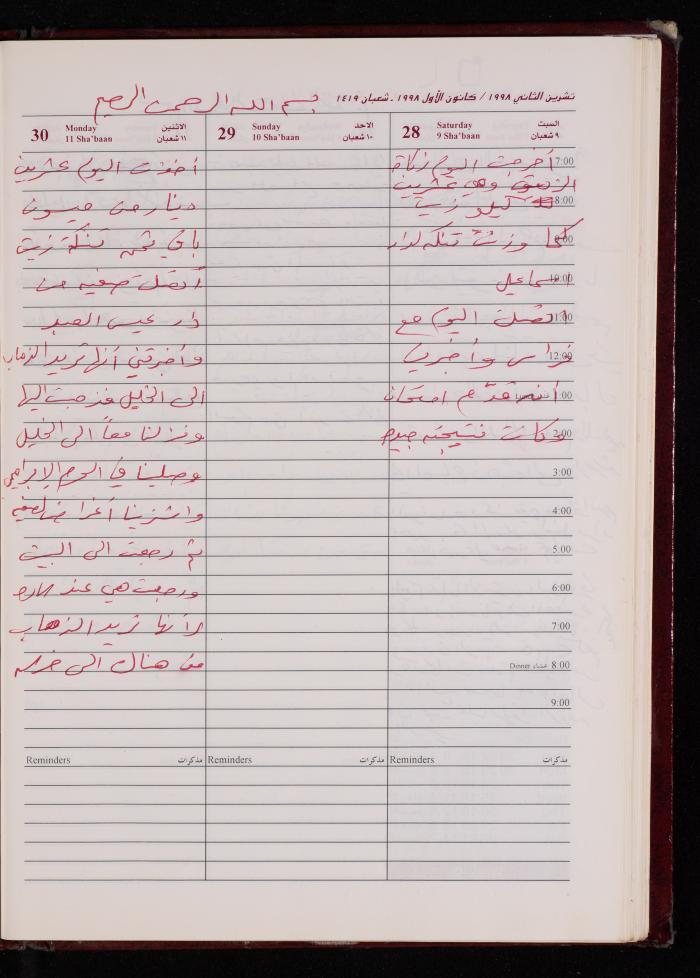 تشرين الثاني ١٩٩٨ / كانون الأول ١٩٩٨ - شعبان ١٤١٩
بسم الله الرحمن الرحيم
28 Saturday السبت
9 Sha'baan ٩ شعبان
7:00 أخرجت اليوم زكاة
الزيتون وهي عشرين
8:00 كيلو زيت
9:00 كما وزنت تنكه لدار
10:00 اسماعيل
11:00 اتصلت اليوم مع
12:00 فراس وأخبرني
1:00 أنه قدّم امتحان
2:00 وكانت نتيجته جيده
3:00
4:00
5:00
6:00
7:00
Dinner عشاء 8:00
9:00
Reminders مذكرات
29 Sunday الاحد
10 Sha'baan ١٠ شعبان
Reminders مذكرات
30 Monday الاثنين
11 Sha'baan ١١ شعبان
أخذت اليوم عشرين
دينار من ميسون
باقي ثمن تنكة زيت
أتصلت صفيه من
دار عيسى العبد
وأخبرتني أنها تريد الذهاب
الى الخليل فذهبت اليها
ونزلنا معاً الى الخليل
وصلينا في الحرم الإبراهيمي
واشترينا أغراض لصفيه
ثم رجعت الى البيت
ورجعت هي عند
لأنها تريد الذهاب
من هناك الى
Reminders مذكرات